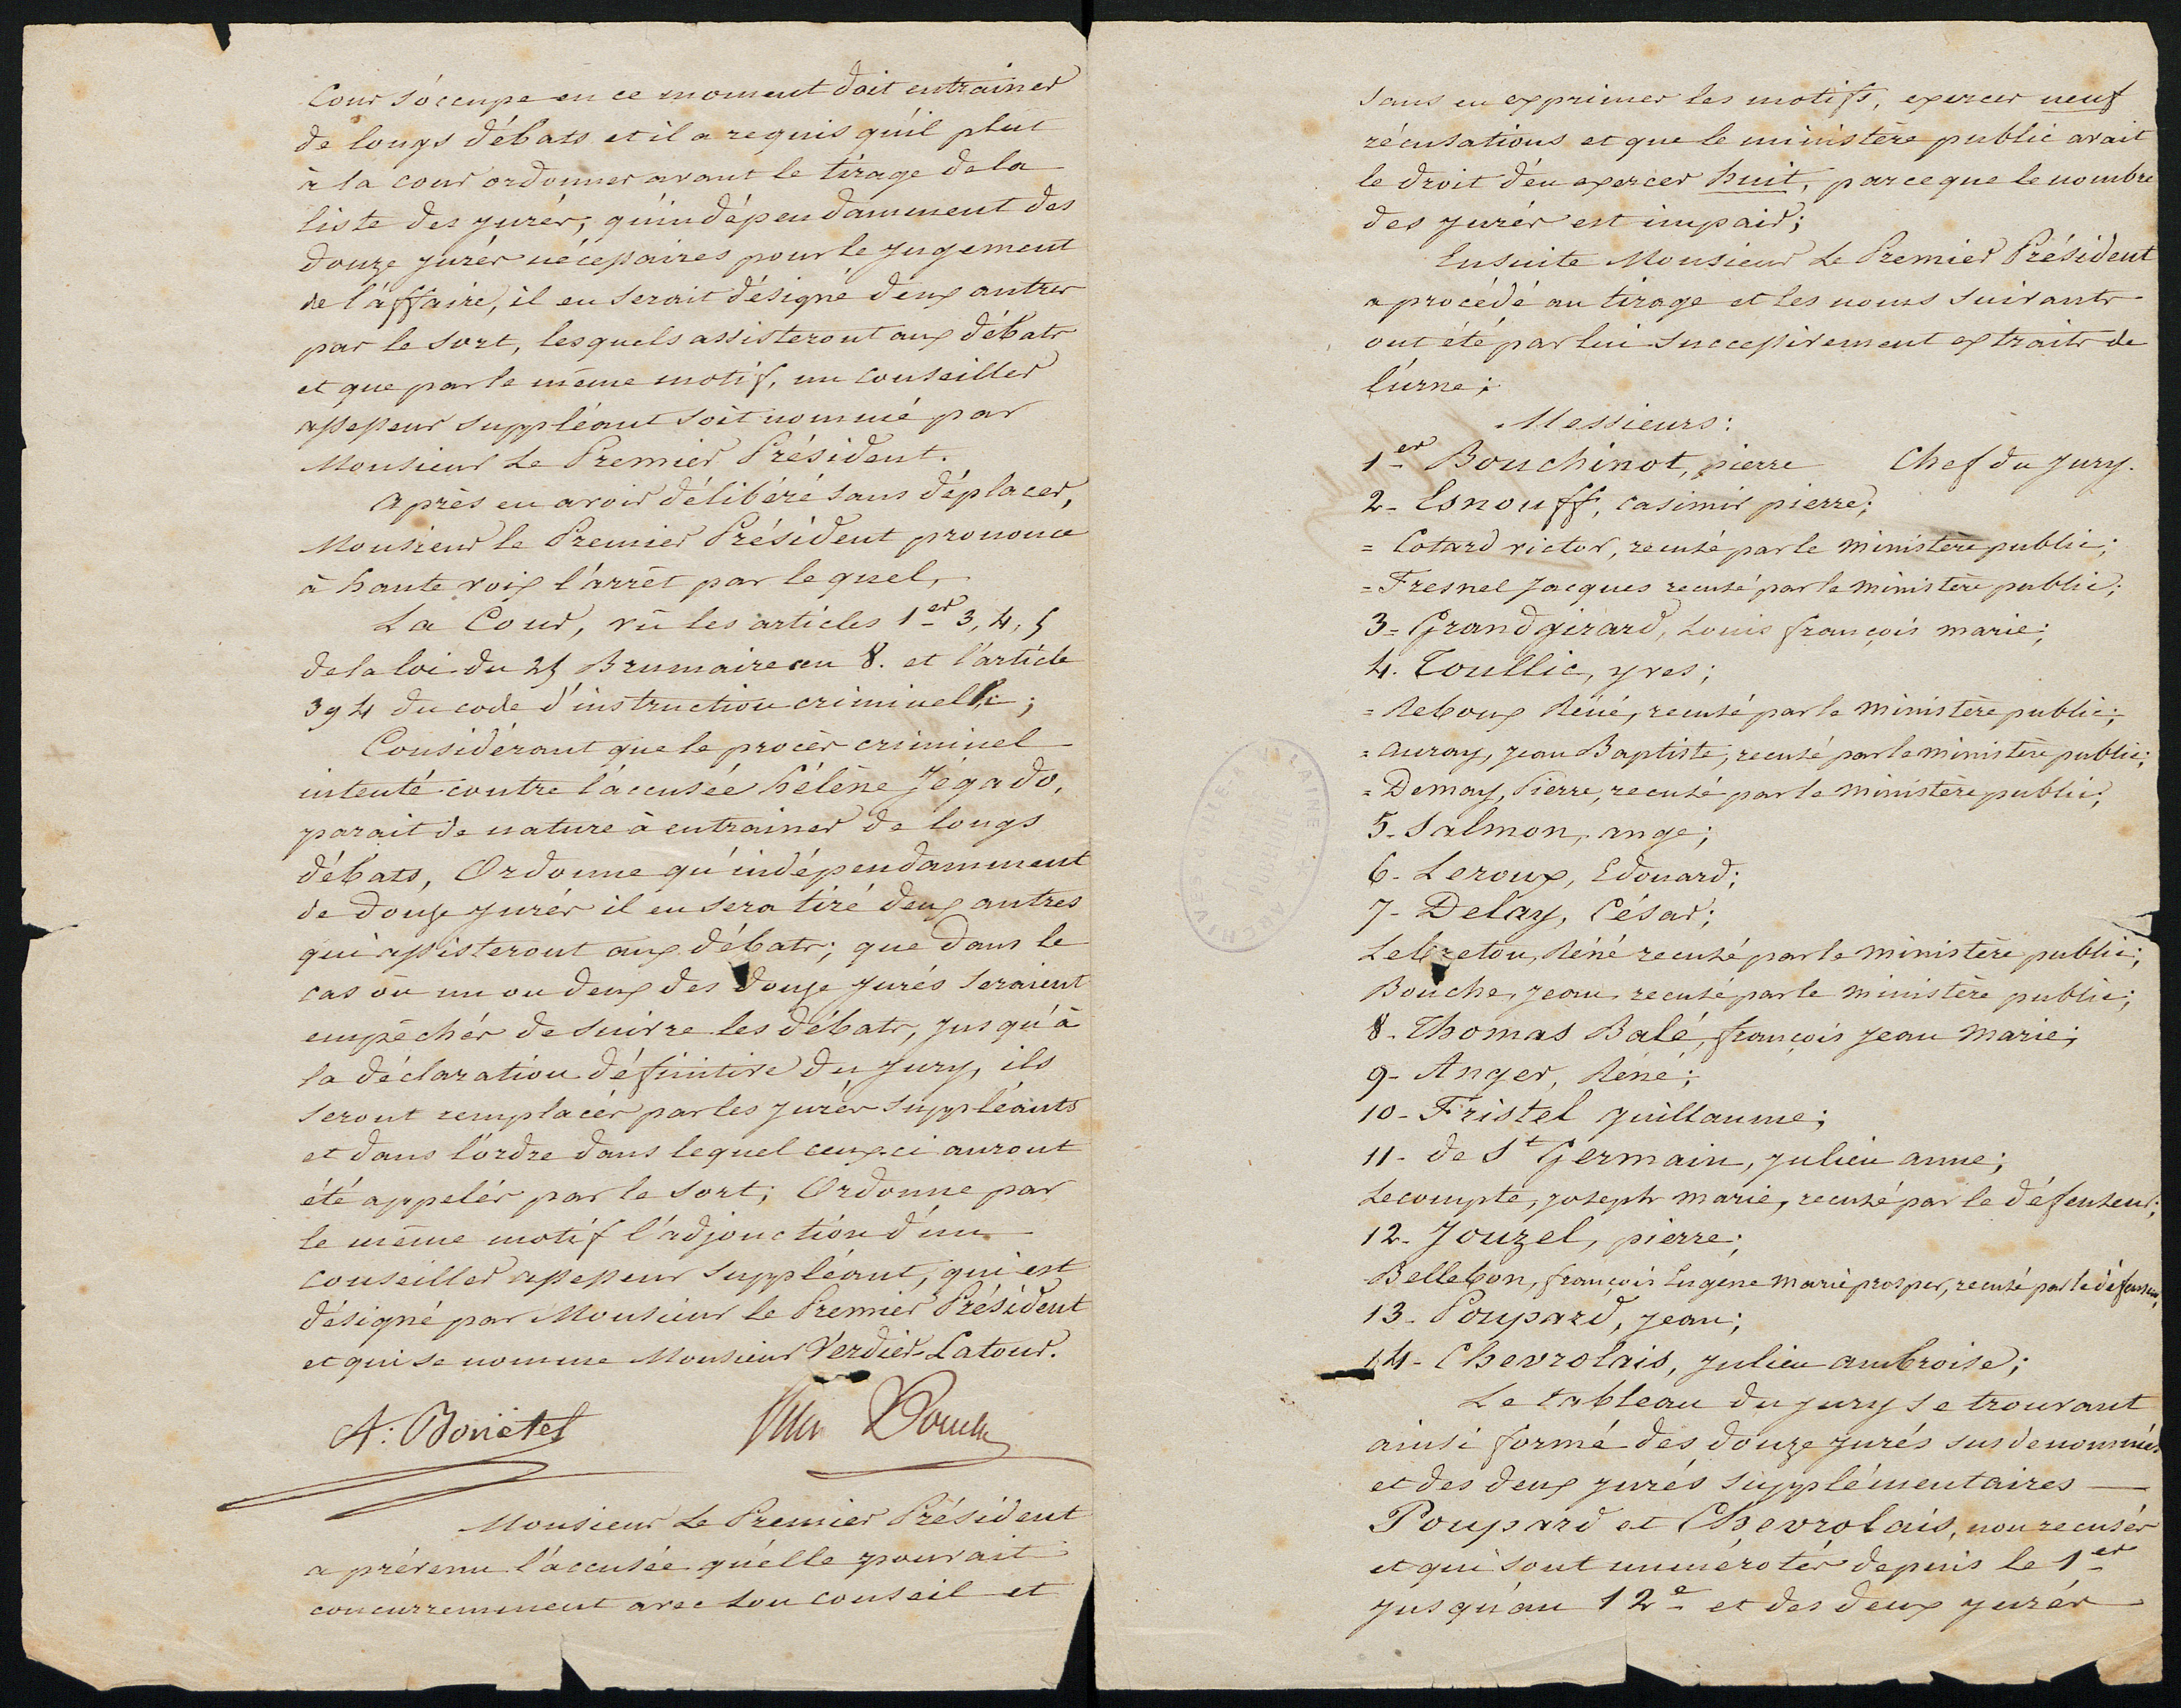 Cour s'occupe en ce moment doit entrainer
de longs débats et il a requis qu'il plut
à la cour ordonner avant le tirage de la
liste des jurés, qu'indépendamment des
douze jurés nécessaires pour le jugement
de l'affaire, il en serait désigné deux autres
par le sort, lesquels assisteront aux débats
et que par le même motif, un conseiller
assesseur suppléant soit nommé par
Monsieur Le Premier Président.
Après en avoir délibéré sans déplacer,
Monsieur le Premier Président prononce
à haute voix l'arrêt par lequel,
La Cour, vû les articles 1er 3, 4, 5
de la loi du 25 Brumaire an 8. et l'article
394 du code d'instruction criminelle;
Considérant que le procès criminel
intenté contre l'accusée hélène Jégado,
parait de nature à entrainer de longs
débats, Ordonne qu'indépendamment
de douze jurés il en sera tiré deux autres
qui assisteront aux débats; que dans le
cas où un ou deux des douze jurés seraient
empêchés de suivre les débats, jusqu'à
la déclaration définitive du jury, ils
seront remplacés par les jurés suppléants
et dans l'ordre dans lequel ceux-ci auront
été appelés par le sort; Ordonne par
le même motif l'adjonction d'un
conseiller assesseur suppléant, qui est
désigné par Monsieur le Premier Président
et qui se nomme Monsieur Verdier-Latour.
Monsieur Le Premier Président
a prévenu l'accusée qu'elle pouvait
concurremment avec son conseil et
sans en exprimer les motifs, exercer neuf
récusations et que le ministère public avait
le droit d'en exercer huit, parceque le nombre
des jurés est impair;
Ensuite Monsieur Le Premier Président
a procédé au tirage et les noms suivants
ont été par lui successivement extraits de
l'urne;
Messieurs:
1er Bouchinot, pierre Chef du jury.
2- Esnouff, casimir pierre;
= Cotard victor, recusé par le ministère public;
= Fresnel Jacques recusé par le ministère public;
3= Grandgirard, Louis françois marie;
4. Toullic, yves;
= Reboux Réné, recusé par le ministère public;
= Auray, jean Baptiste, recusé par le ministère public;
= Demay, Pierre, recusé par le ministère public;
5- Salmon, ange;
6- Leroux, Edouard;
7- Delay, César;
Lebreton, Réné recusé par le ministère public;
Bouche, jean, recusé par le ministère public;
8- Thomas Balé, françois jean marie;
9- Anger, Réné;
10- Fristel guillaume;
11- de St Germain, julien anne;
Lecompte, joseph marie, recusé par le défenseur;
12- Jouzel, pierre;
Bellebon, françois Eugene marie prosper, recusé par le défenseur,
13- Poupard, jean;
14- Chevrolais, julien ambroise;
Le tableau du jury se trouvant
ainsi formé des douze jurés susdenommés
et des deux jurés supplémentaires
Poupard et Chevrolais, non recusés
et qui sont numérotés depuis le 1er
jusqu'au 12e et des deux jurés